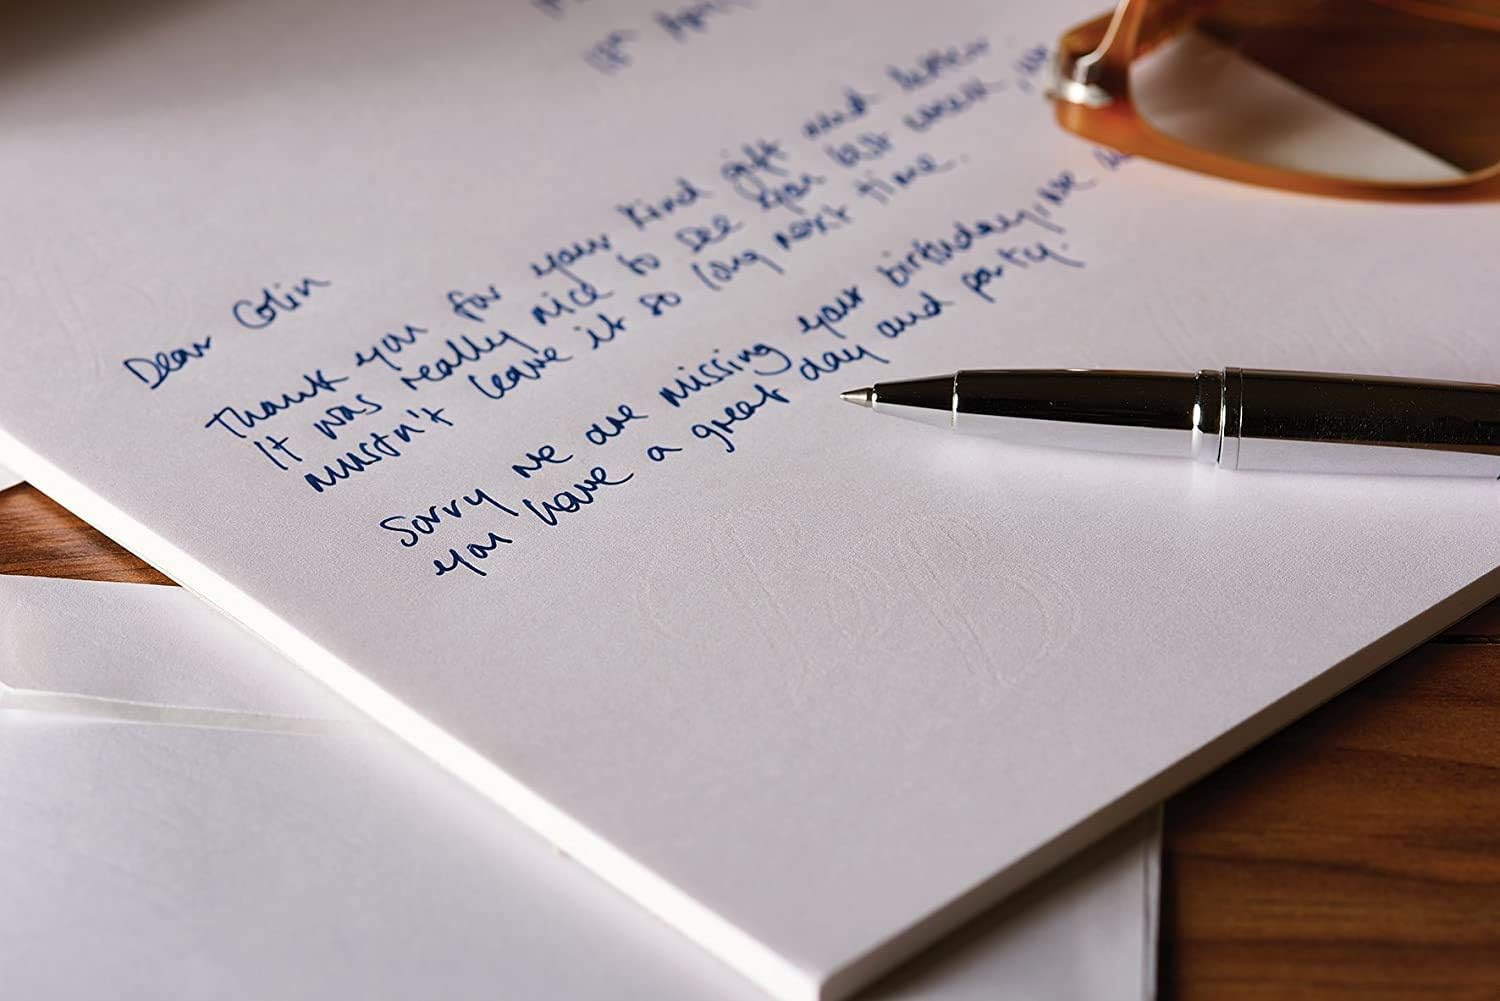 18th April
Dear Colin
Thank you for your kind gift and letter
It was really nice to see you last week, we
mustn't leave it so long next time.
Sorry we are missing your birthday, we
you have a great day and party.